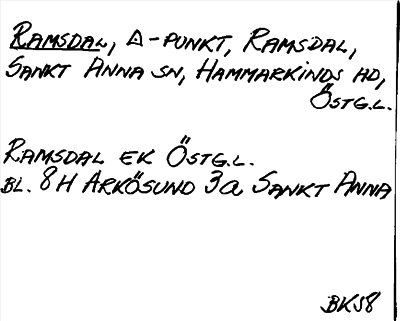 RAMSDAL, △-PUNKT, RAMSDAL,
SANKT ANNA SN, HAMMARKINDS HD,
ÖSTG.L.
RAMSDAL EK ÖSTG.L.
BL. 8H ARKÖSUND 3a SANKT ANNA
BK58